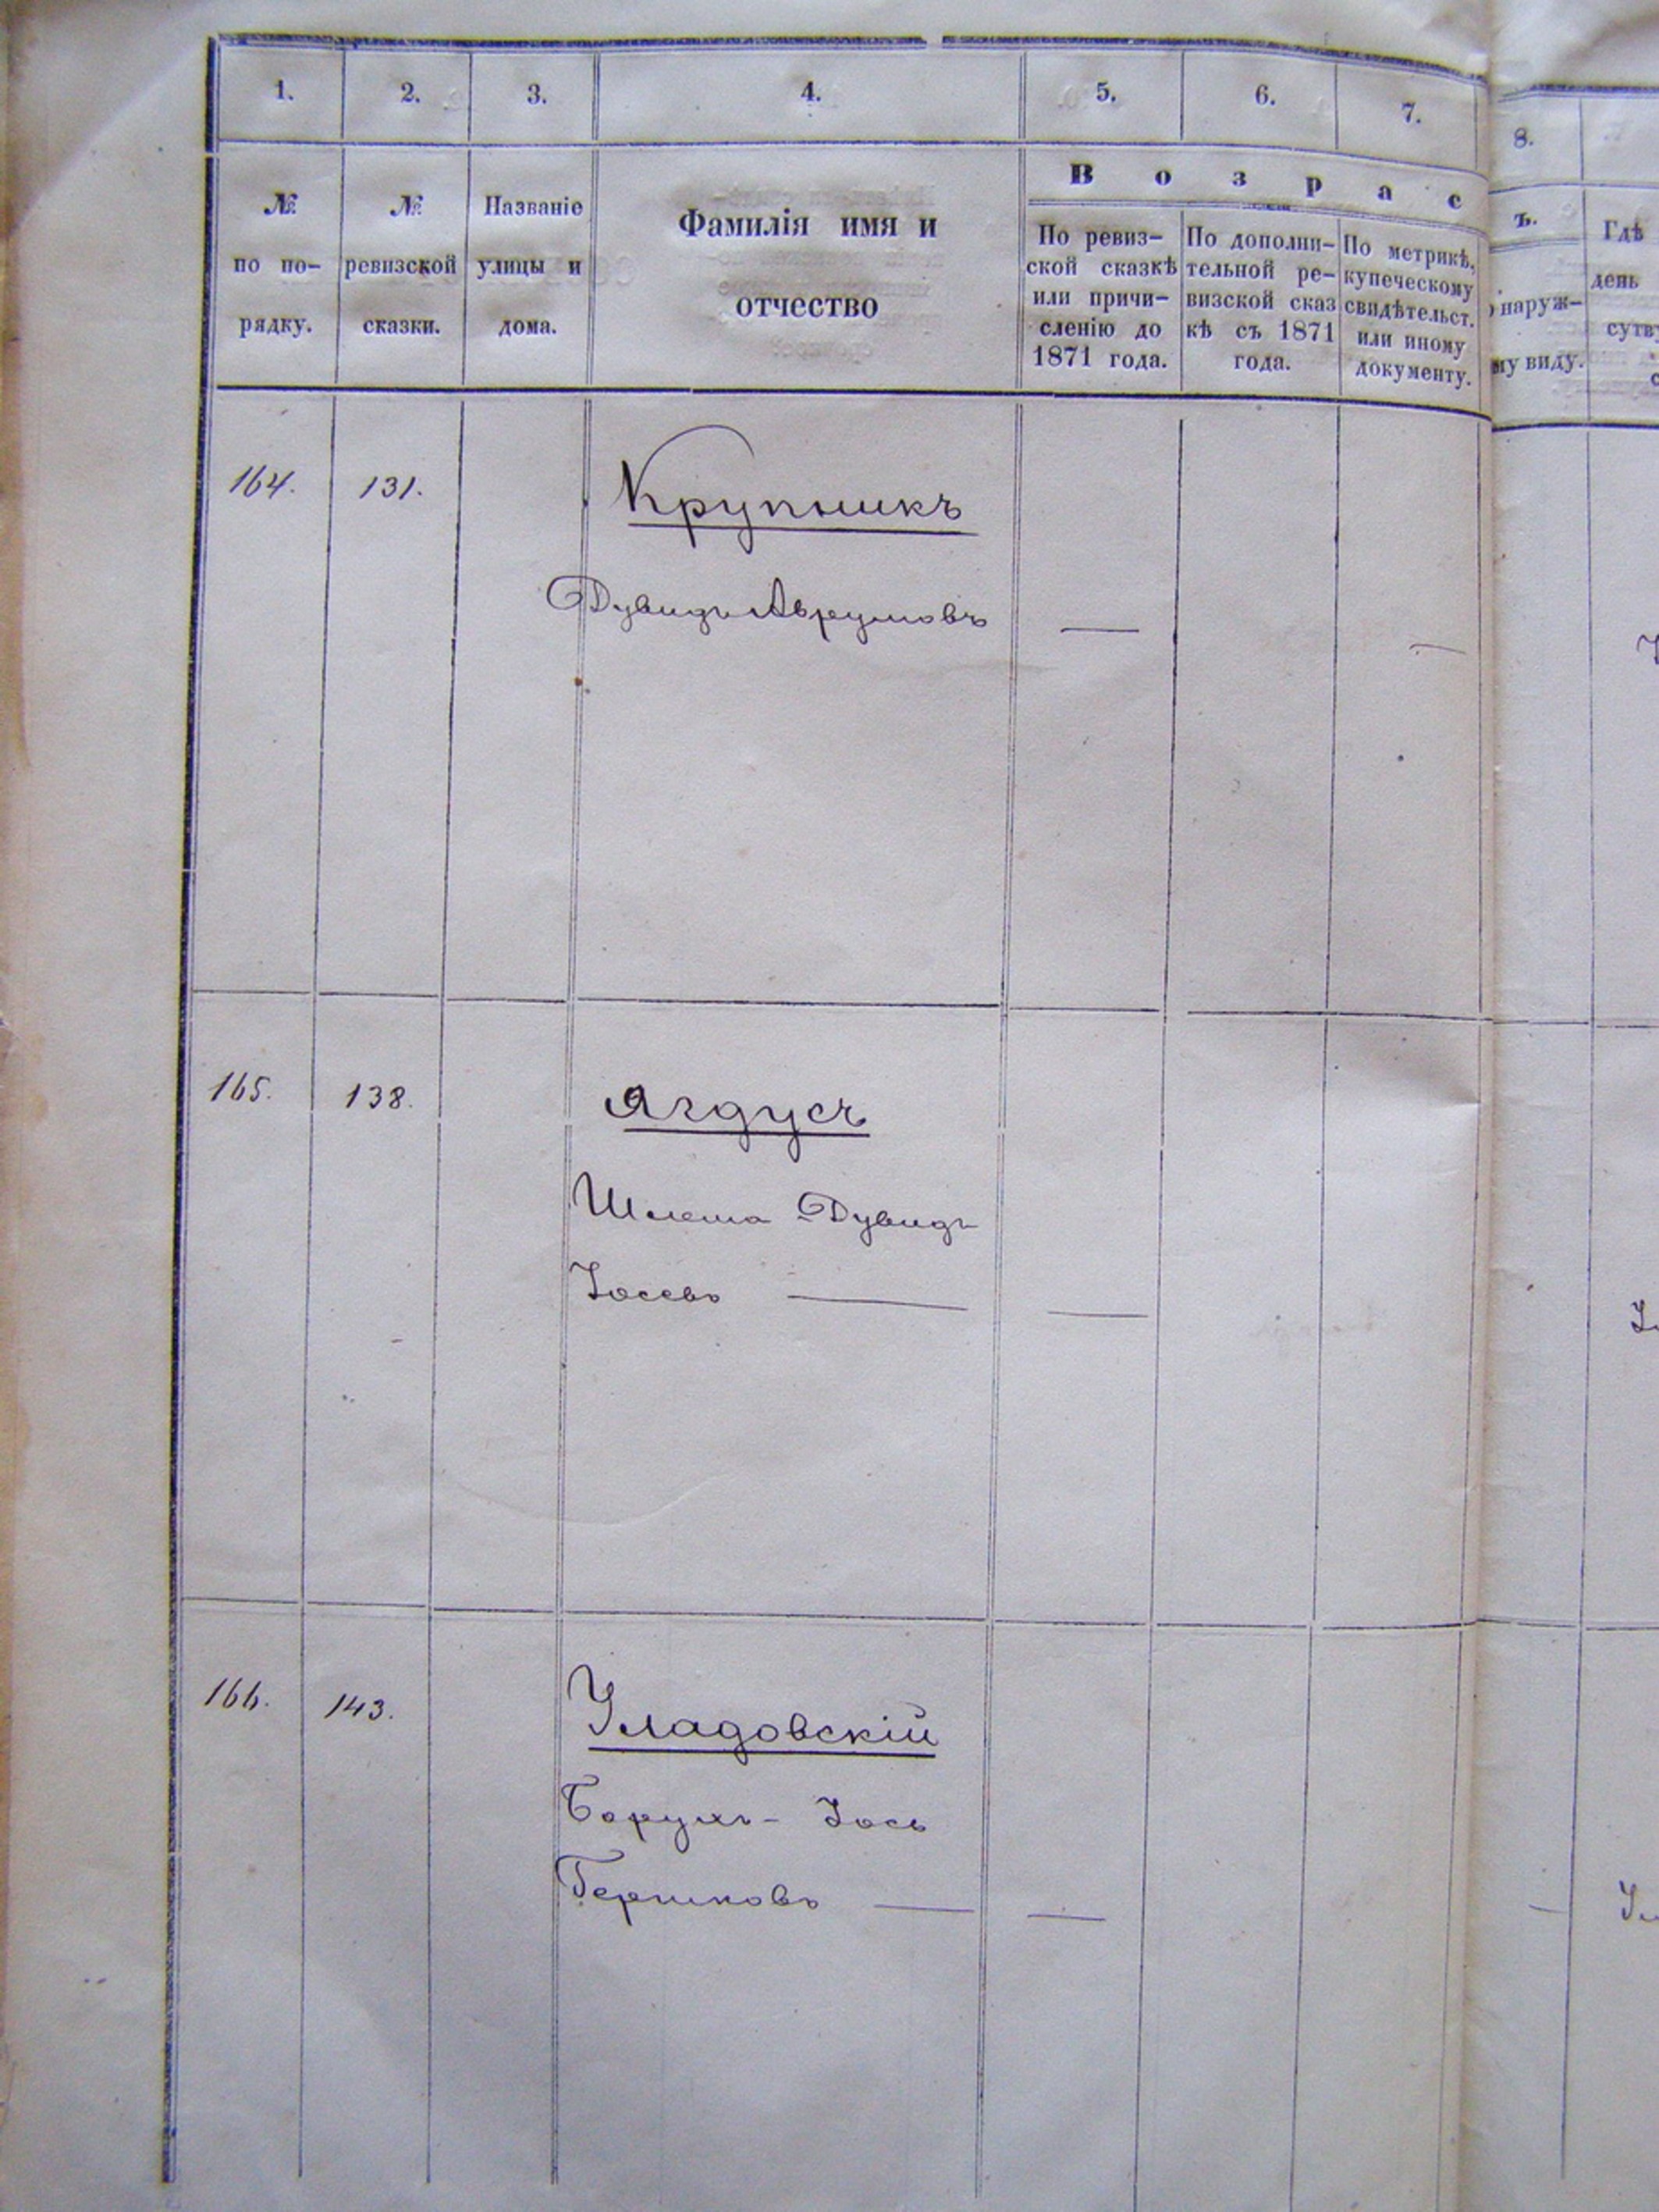 1. 2. 3. 4. 5. 6. 7. 8.
№ по по-рядку.
№ ревизской сказки.
Названіе улицы и дома.
Фамилія имя и
отчество
В о з р а с ъ.
По ревиз-
ской сказкѣ
или причи-
сленію до
1871 года.
По дополни-
тельной ре-
визской сказ
кѣ съ 1871
года.
По метрикѣ,
купеческому
свидѣтельст.
или иному
документу.
наруж-
му виду.
Гдѣ
день
164. 131. Крупникъ
Дувидъ Аврумовъ —
165. 138. Ягдусъ
Шлема Дувидъ
Іосевъ — —
166. 143. Уладовскій
Борухъ - Іось
Гершковъ — —